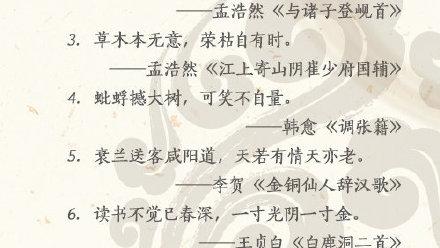 ——孟浩然《与诸子登岘首》
3. 草木本无意，荣枯自有时。
——孟浩然《江上寄山阴崔少府国辅》
4. 蚍蜉撼大树，可笑不自量。
——韩愈《调张籍》
5. 衰兰送客咸阳道，天若有情天亦老。
——李贺《金铜仙人辞汉歌》
6. 读书不觉已春深，一寸光阴一寸金。
——王贞白《白鹿洞二首》